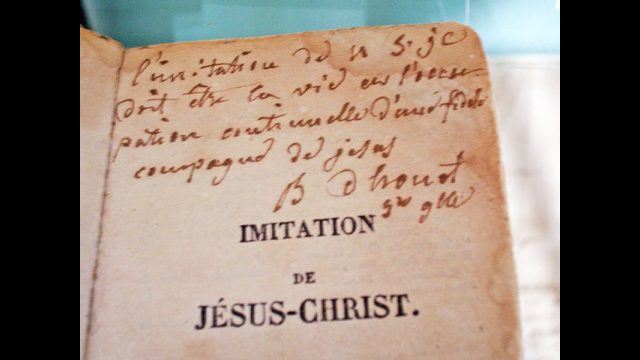 l'imitation de n S. j C
doit être la vie et l'occu
pation continuelle d'une fidele
compagne de jesus
B d'houet
gre glle
IMITATION
DE
JÉSUS-CHRIST.